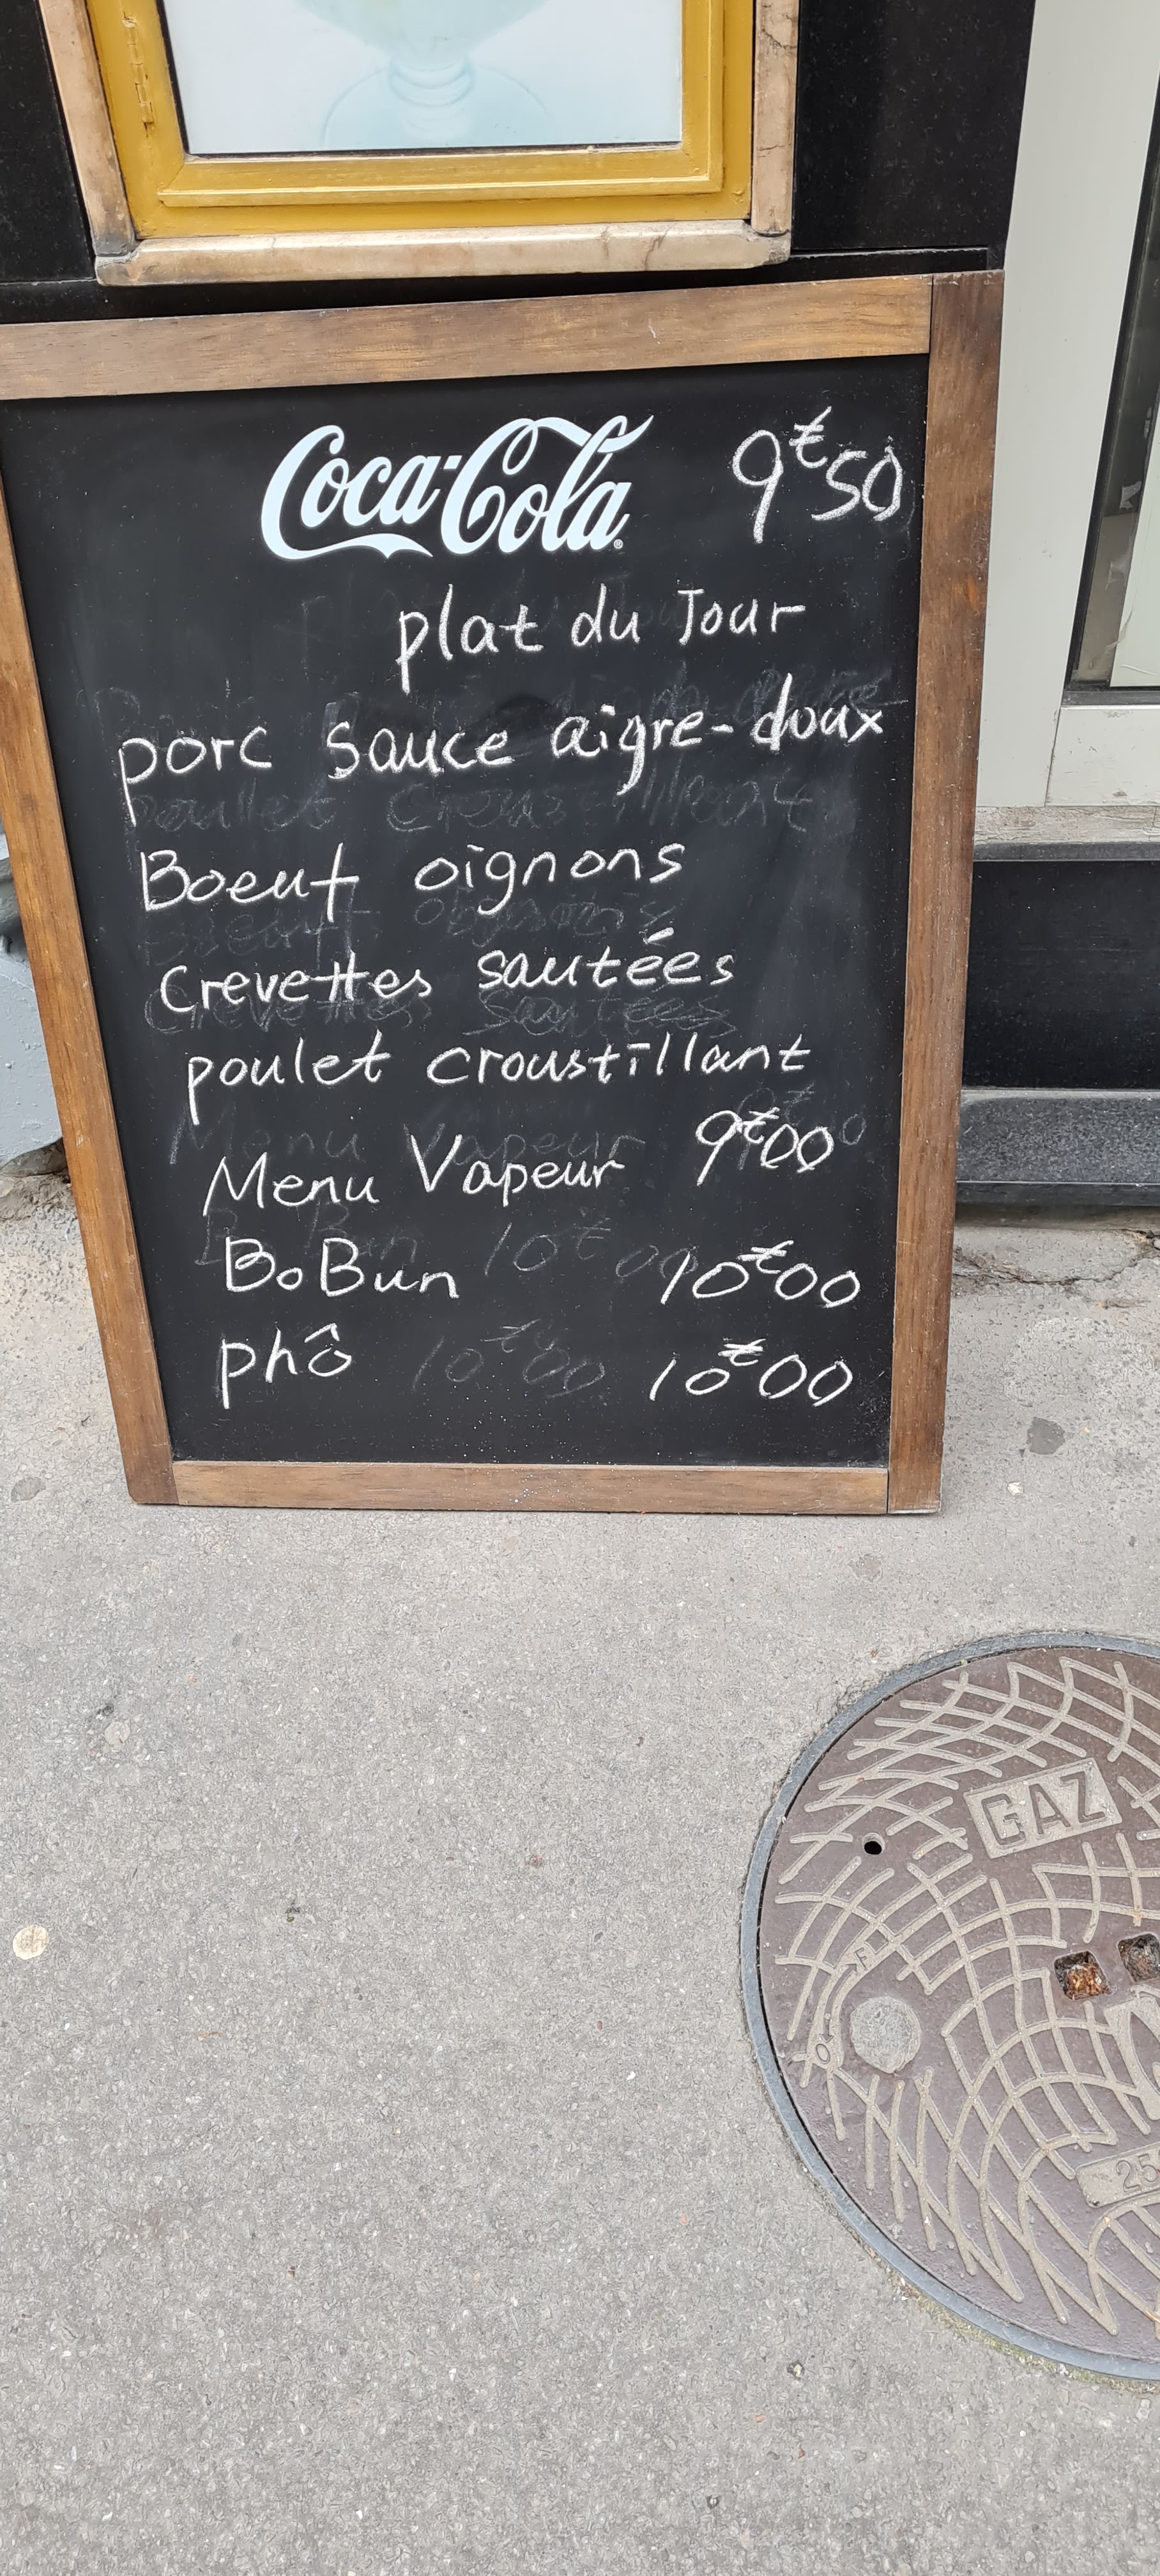 Coca-Cola 9€50
plat du Jour
porc sauce aigre-doux
Boeuf oignons
crevettes sautées
poulet croustillant
Menu Vapeur 9€00
BoBun 10€00
phô 10€00
GAZ
F
O
25